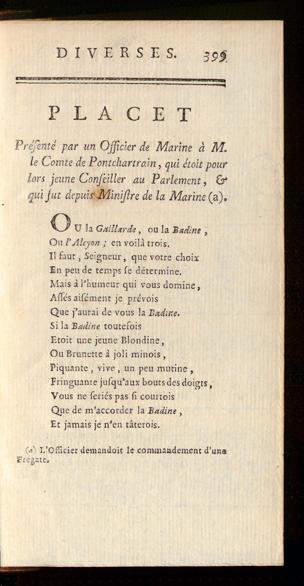 DIVERSES. 399
PLACET
Préſenté par un Officier de Marine à M.
le Comte de Pontchartrain, qui étoit pour
lors jeune Conſeiller au Parlement, &
qui fut depuis Miniſtre de la Marine (a).
OU la Gaillarde, ou la Badine,
Ou l'Alcyon ; en voilà trois.
Il faut, Seigneur, que votre choix
En peu de temps ſe détermine.
Mais à l'humeur qui vous domine,
Aſſés aiſément je prévois
Que j'aurai de vous la Badine.
Si la Badine toutefois
Etoit une jeune Blondine,
Ou Brunette à joli minois,
Piquante, vive, un peu mutine,
Fringuante juſqu'aux bouts des doigts,
Vous ne ſeriés pas ſi courtois
Que de m'accorder la Badine,
Et jamais je n'en tâterois.
(a) L'Officier demandoit le commandement d'une
Frégate.